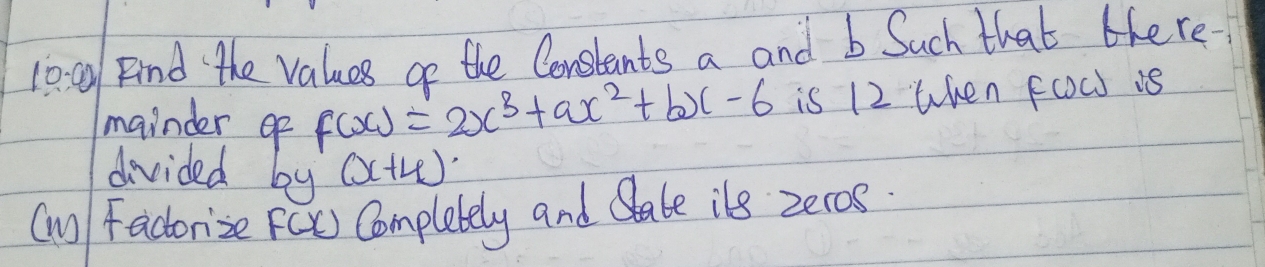 10.a) Find the values of the Constants a and b Such that there-
mainder of f(x) = 2x³ + ax² + bx - 6 is 12 when f(x) is
divided by (x+4).
(ii) Factorize F(x) Completely and State its zeros.